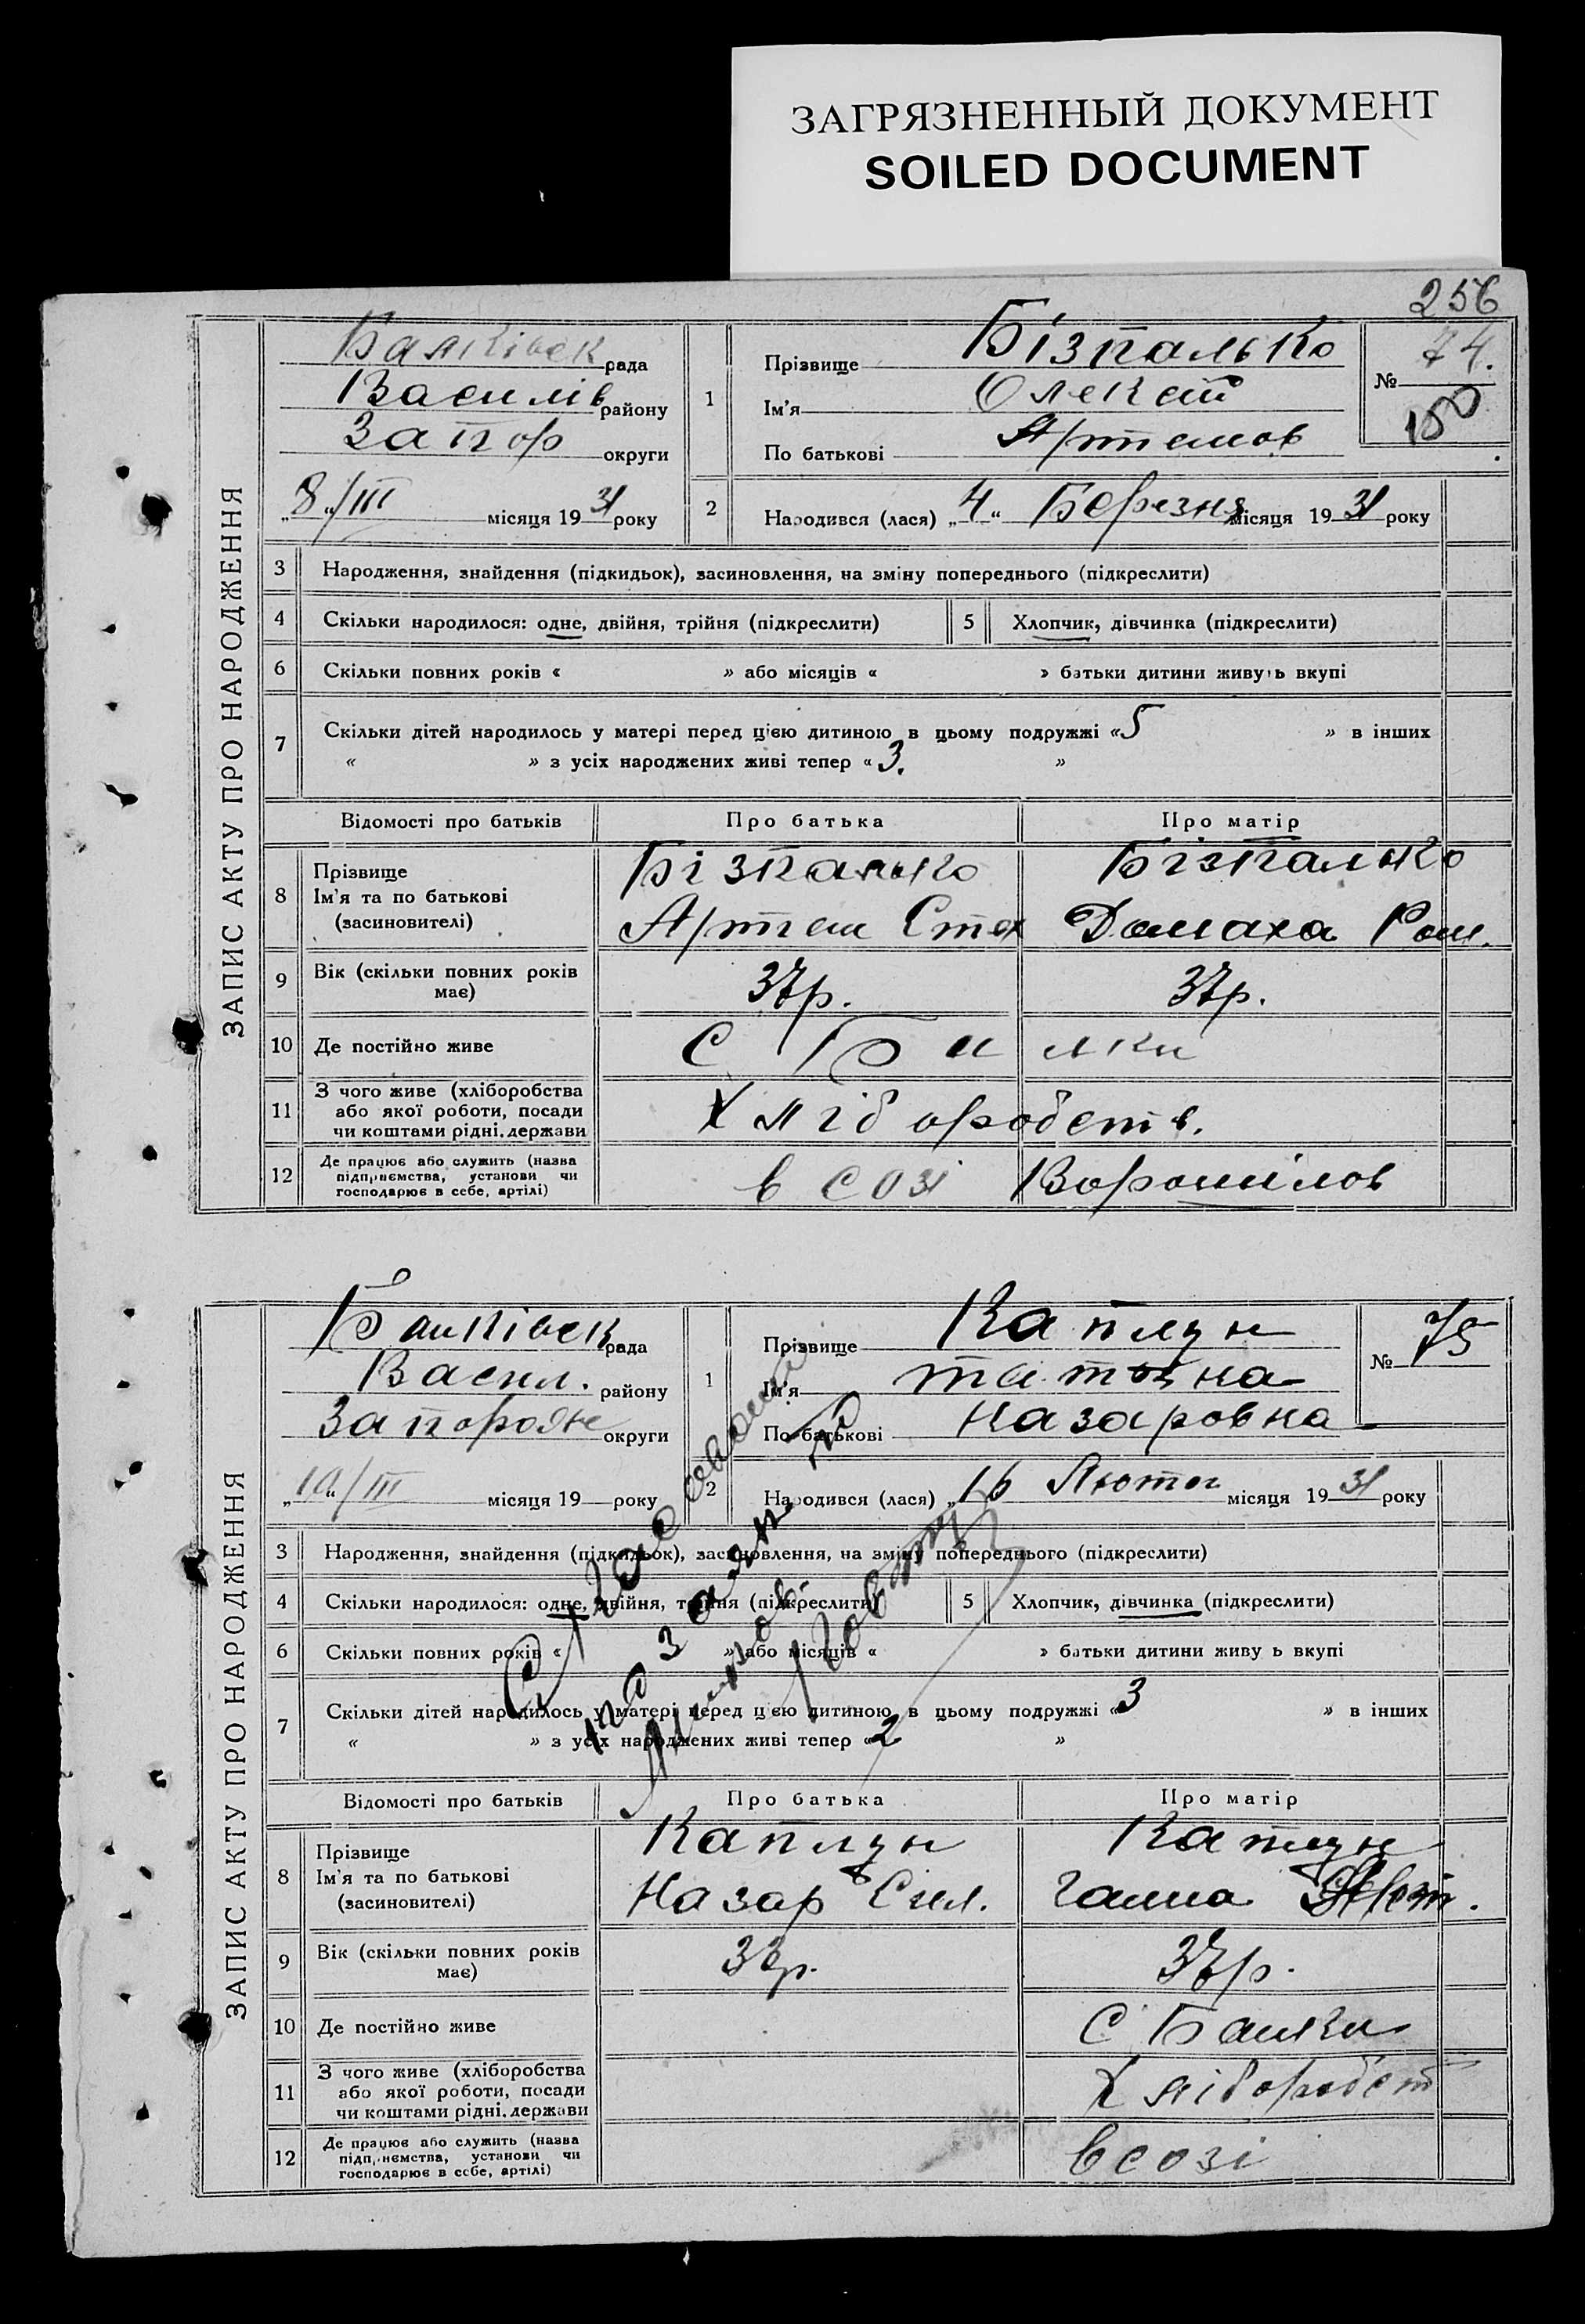 ЗАГРЯЗНЕННЫЙ ДОКУМЕНТ
SOILED DOCUMENT
256
ЗАПИС АКТУ ПРО НАРОДЖЕННЯ
Балківск рада
Василів району
Запор округи
„8“/III місяця 1931 року
1
Прізвище Бізпалько
Ім'я Олексій
По батькові Артемов
№ 74.
150
2
Народився (лася) „4“ Березня місяця 1931 року
3 Народження, знайдення (підкидьок), засиновлення, на зміну попереднього (підкреслити)
4 Скільки народилося: одне, двійня, трійня (підкреслити)
5 Хлопчик, дівчинка (підкреслити)
6 Скільки повних років « » або місяців « » батьки дитини живуть вкупі
7 Скільки дітей народилось у матері перед цією дитиною в цьому подружжі «5 » в інших
« » з усіх народжених живі тепер «3. »
Відомості про батьків Про батька Про матір
8 Прізвище Ім'я та по батькові (засиновителі)
Бізпалько Бізпалько
Артем Степ Домаха Ром.
9 Вік (скільки повних років має) 37р. 37р.
10 Де постійно живе С Балки
11 З чого живе (хліборобства або якої роботи, посади чи коштами рідні, держави
Хліборобств.
12 Де працює або служить (назва підприємства, установи чи господарює в себе, артілі)
в созі Ворошилов
ЗАПИС АКТУ ПРО НАРОДЖЕННЯ
Балківск рада
Васил. району
Запорож округи
„10“/III місяця 19 року
1
Прізвище Каплун
Ім'я татяна
По батькові Назаровна
№ 75
2
Народився (лася) „16 Лютого місяця 1931 року
3 Народження, знайдення (підкидьок), засиновлення, на зміну попереднього (підкреслити)
4 Скільки народилося: одне, двійня, трійня (підкреслити)
5 Хлопчик, дівчинка (підкреслити)
6 Скільки повних років « » або місяців « » батьки дитини живу ь вкупі
7 Скільки дітей народилось у матері перед цією дитиною в цьому подружжі «3 » в інших
« » з усіх народжених живі тепер «2 »
Відомості про батьків Про батька Про матір
8 Прізвище Ім'я та по батькові (засиновителі)
Каплун Каплун
Назар Сил. Ганна
9 Вік (скільки повних років має) 33р. 37р.
10 Де постійно живе С Балки
11 З чого живе (хліборобства або якої роботи, посади чи коштами рідні, держави
Хліборобст
12 Де працює або служить (назва підприємства, установи чи господарює в себе, артілі)
в созі